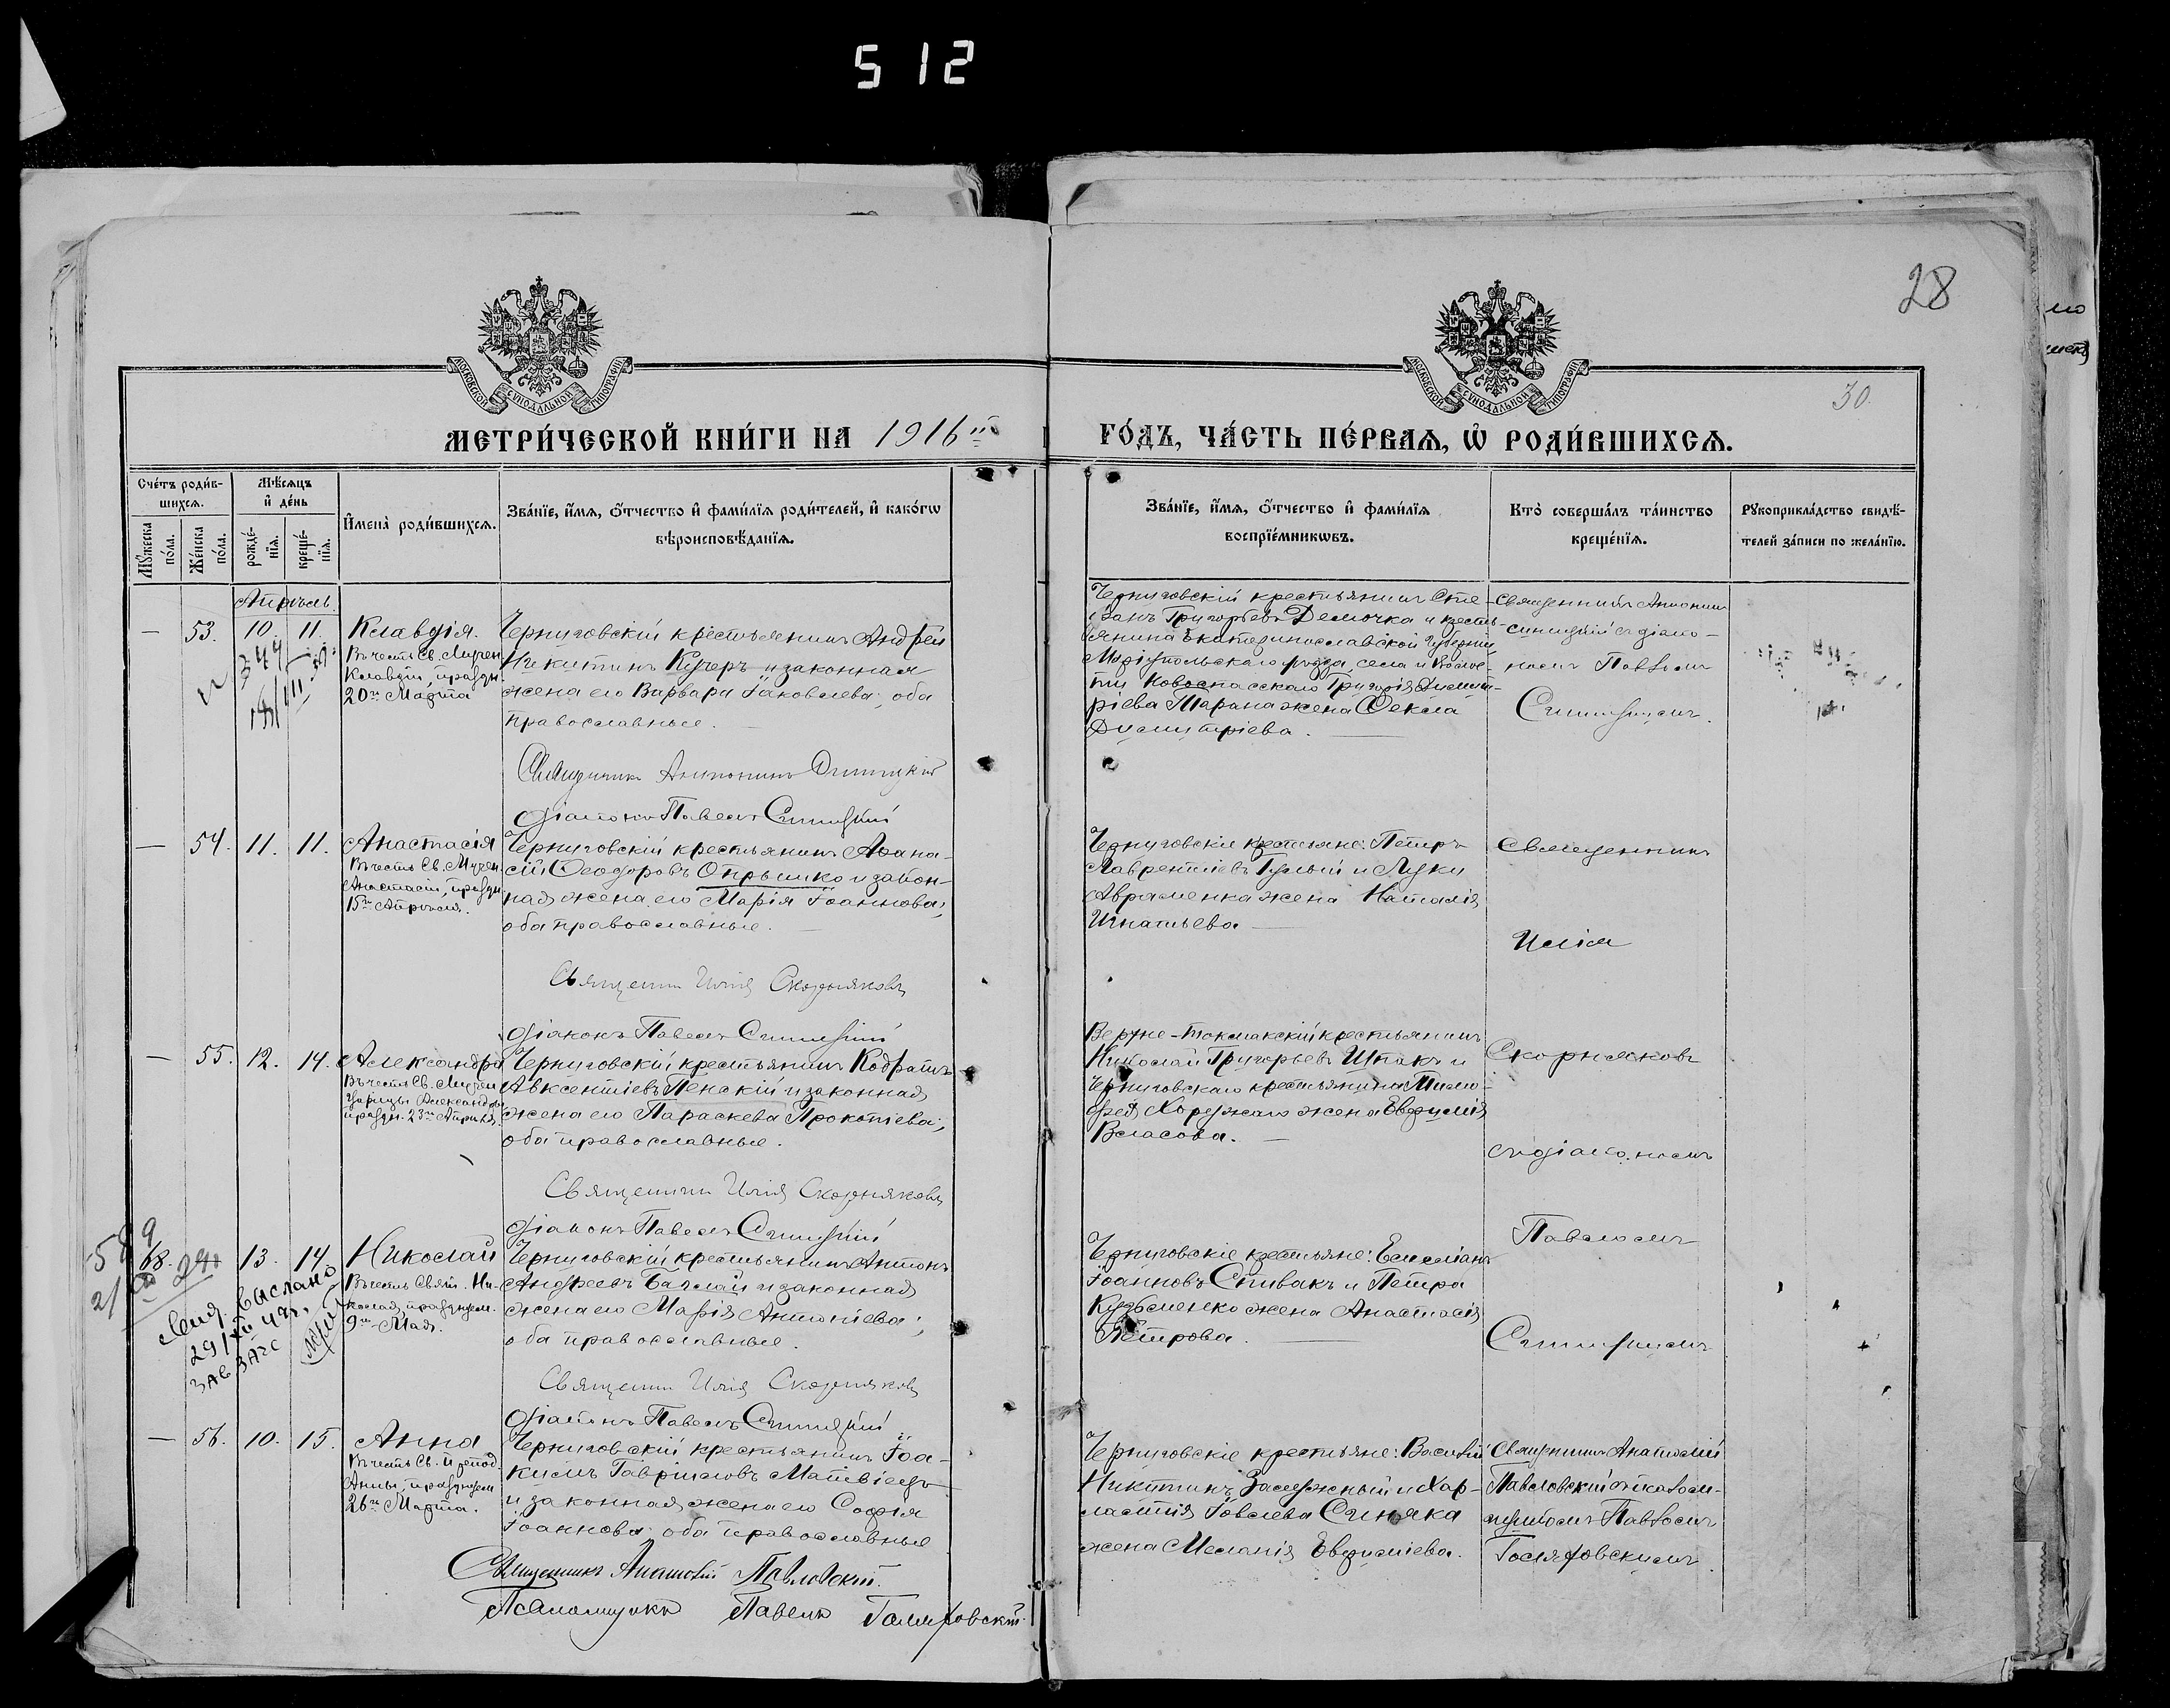 512
28
30
МОСКОВСКОЙ СѴНОДАЛЬНОЙ ТИПОГРАФІИ
МОСКОВСКОЙ СѴНОДАЛЬНОЙ ТИПОГРАФІИ
МЕТРИ́ЧЕСКОЙ КНИ́ГИ НА 1916й
ГО́ДЪ, ЧА́СТЬ ПЕ́РВАѦ, Ѡ҆ РОДИ́ВШИХСѦ.
Сче́тъ роди́в-
шихсѧ.
Мꙋ́жеска по́ла.
Же́нска по́ла.
Мѣ́сѧцъ
и҆ де́нь
рожде́-
нїѧ.
креще́-
нїѧ.
И҆мена̀ роди́вшихсѧ.
Зва́нїе, и҆́мѧ, ѻ҆́тчество и҆ фами́лїѧ роди́телей, и҆ како́гѡ
вѣроисповѣ́данїѧ.
Зва́нїе, и҆́мѧ, ѻ҆́тчество и҆ фами́лїѧ
воспрїе́мникѡвъ.
Кто̀ соверша́лъ та́инство
креще́нїѧ.
Рꙋкоприкла́дство свидѣ́-
телей за́писи по жела́нїю.
Апрѣль.
— 53. 10. 11. Клавдія.
Въ честь Св. Мучен.
Клавдіи, праздн.
20го Марта
Черниговскій крестьянинъ Андрей
Никитинъ Кучеръ и законная
жена его Варвара Іаковлева, оба
православные. —
Священникъ Антонинъ
Діаконъ Павелъ Синицкій
Черниговскій крестьянинъ Сте-
фанъ Григорьевъ Демочка и кресть-
янина Екатеринославской губерніи
Маріупольскаго уѣзда, села и волос-
ти Новоспасскаго Григорія Димит-
ріева Тарана жена Ѳекла
Димитріева. —
Священникъ Антонинъ
съ діако-
номъ Павломъ
Синицкимъ.
— 54. 11. 11. Анастасія
Въ честь Св. Мучен.
Анастасіи, праздн.
15го Апрѣля.
Черниговскій крестьянинъ Аѳана-
сій Ѳеодоровъ Опрышко и закон-
ная жена его Марія Іоаннова;
оба православные. —
Священникъ Илія Скорняковъ
Діаконъ Павелъ Синицкій
Черниговскіе крестьяне: Петръ
Лаврентіевъ и Луки
Авраменка жена Наталія
Игнатьева —
Священникъ
Илія
— 55. 12. 14. Александра
Въ честь Св. Мучен.
Царицы Александры
праздн. 23го Апрѣля.
Черниговскій крестьянинъ Кодратъ
Авксентіевъ Пенскій и законная
жена его Параскева Прокопіева;
оба православные.
Священникъ Илія Скорняковъ
Діаконъ Павелъ Синицкій
Верхне-Токмакскій крестьянинъ
Николай Григорьевъ Шпакъ и
Черниговскаго крестьянина Тимо-
фея Хоружаго жена Евфимія
Власова. —
Скорняковъ
съ діакономъ
589
68. 13. 14. Николай
Въ честь Свят. Ни-
колая, празднуем.
9го Мая.
выслано
ЗАВ ЗАГС
Черниговскій крестьянинъ Антонъ
Андреевъ Баклай и законная
жена его Марія Антоніева;
оба православные.
Священникъ Илія Скорняковъ
Діаконъ Павелъ Синицкій
Черниговскіе крестьяне: Емеліанъ
Іоанновъ Спивакъ и Петра
Кузьменко жена Анастасія
Петрова. —
Павломъ
Синицкимъ
— 56. 10. 15. Анна
Въ честь Св. Препод.
Анны, празднуем.
26го Марта.
Черниговскій крестьянинъ Іоа-
кимъ Гавриловъ Матвіецъ
и законная жена его Софія
Іоаннова оба православные
Священникъ Анатолій Павловскій.
Псаломщикъ Павелъ Голяховскій.
Черниговскіе крестьяне: Василій
Никитинъ Залужный и Хар-
лампія Іовлева Синяка
жена Меланія Евфиміева.
Священникъ Анатолій
Павловскій съ псалом-
щикомъ Павломъ
Голяховскимъ.